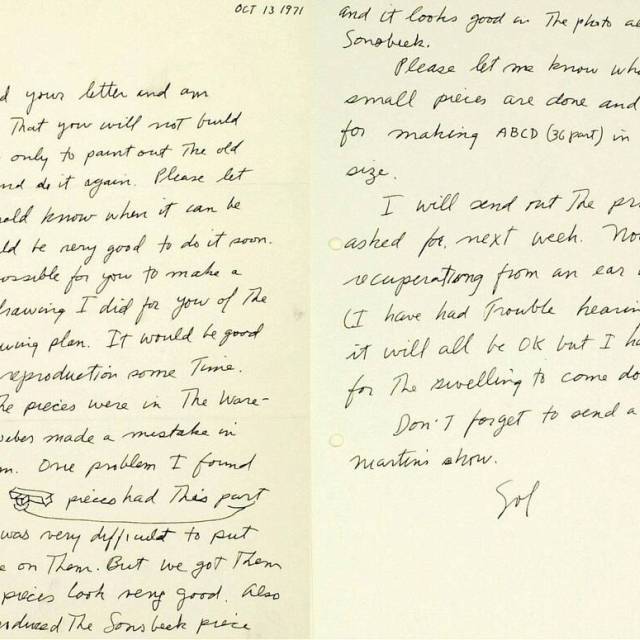 OCT 13 1971
d your letter and am
That you will not build
only to paint out The old
nd do it again. Please let
ald know when it can be
ld be very good to do it soon.
ossible for you to make a
drawing I did for you of The
wing plan. It would be good
reproduction some Time.
he pieces were in The Ware-
made a mistake in
m. One problem I found
pieces had This part
was very difficult to put
e on Them. But we got Them
pieces look very good. Also
The Sonsbeek piece
and it looks good in The photo
Sonsbeek.
Please let me know wh
small pieces are done and
for making ABCD (36 part) in
size.
I will send out The pr
asked for, next week. No
recuperating from an ear
(I have had Trouble hearin
it will all be OK but I ha
for The swelling to come do
Don't forget to send a
martin's show.
Sol